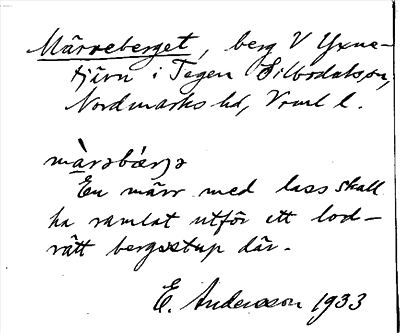 Märreberget, berg V Yxne-
tjärn i Tegen Silbodalssn,
Nordmarks hd, Vrml l.
màrəbærjə
En märr med lass skall
ha ramlat utför ett lod-
rätt bergsstup där.
E. Andersson 1933